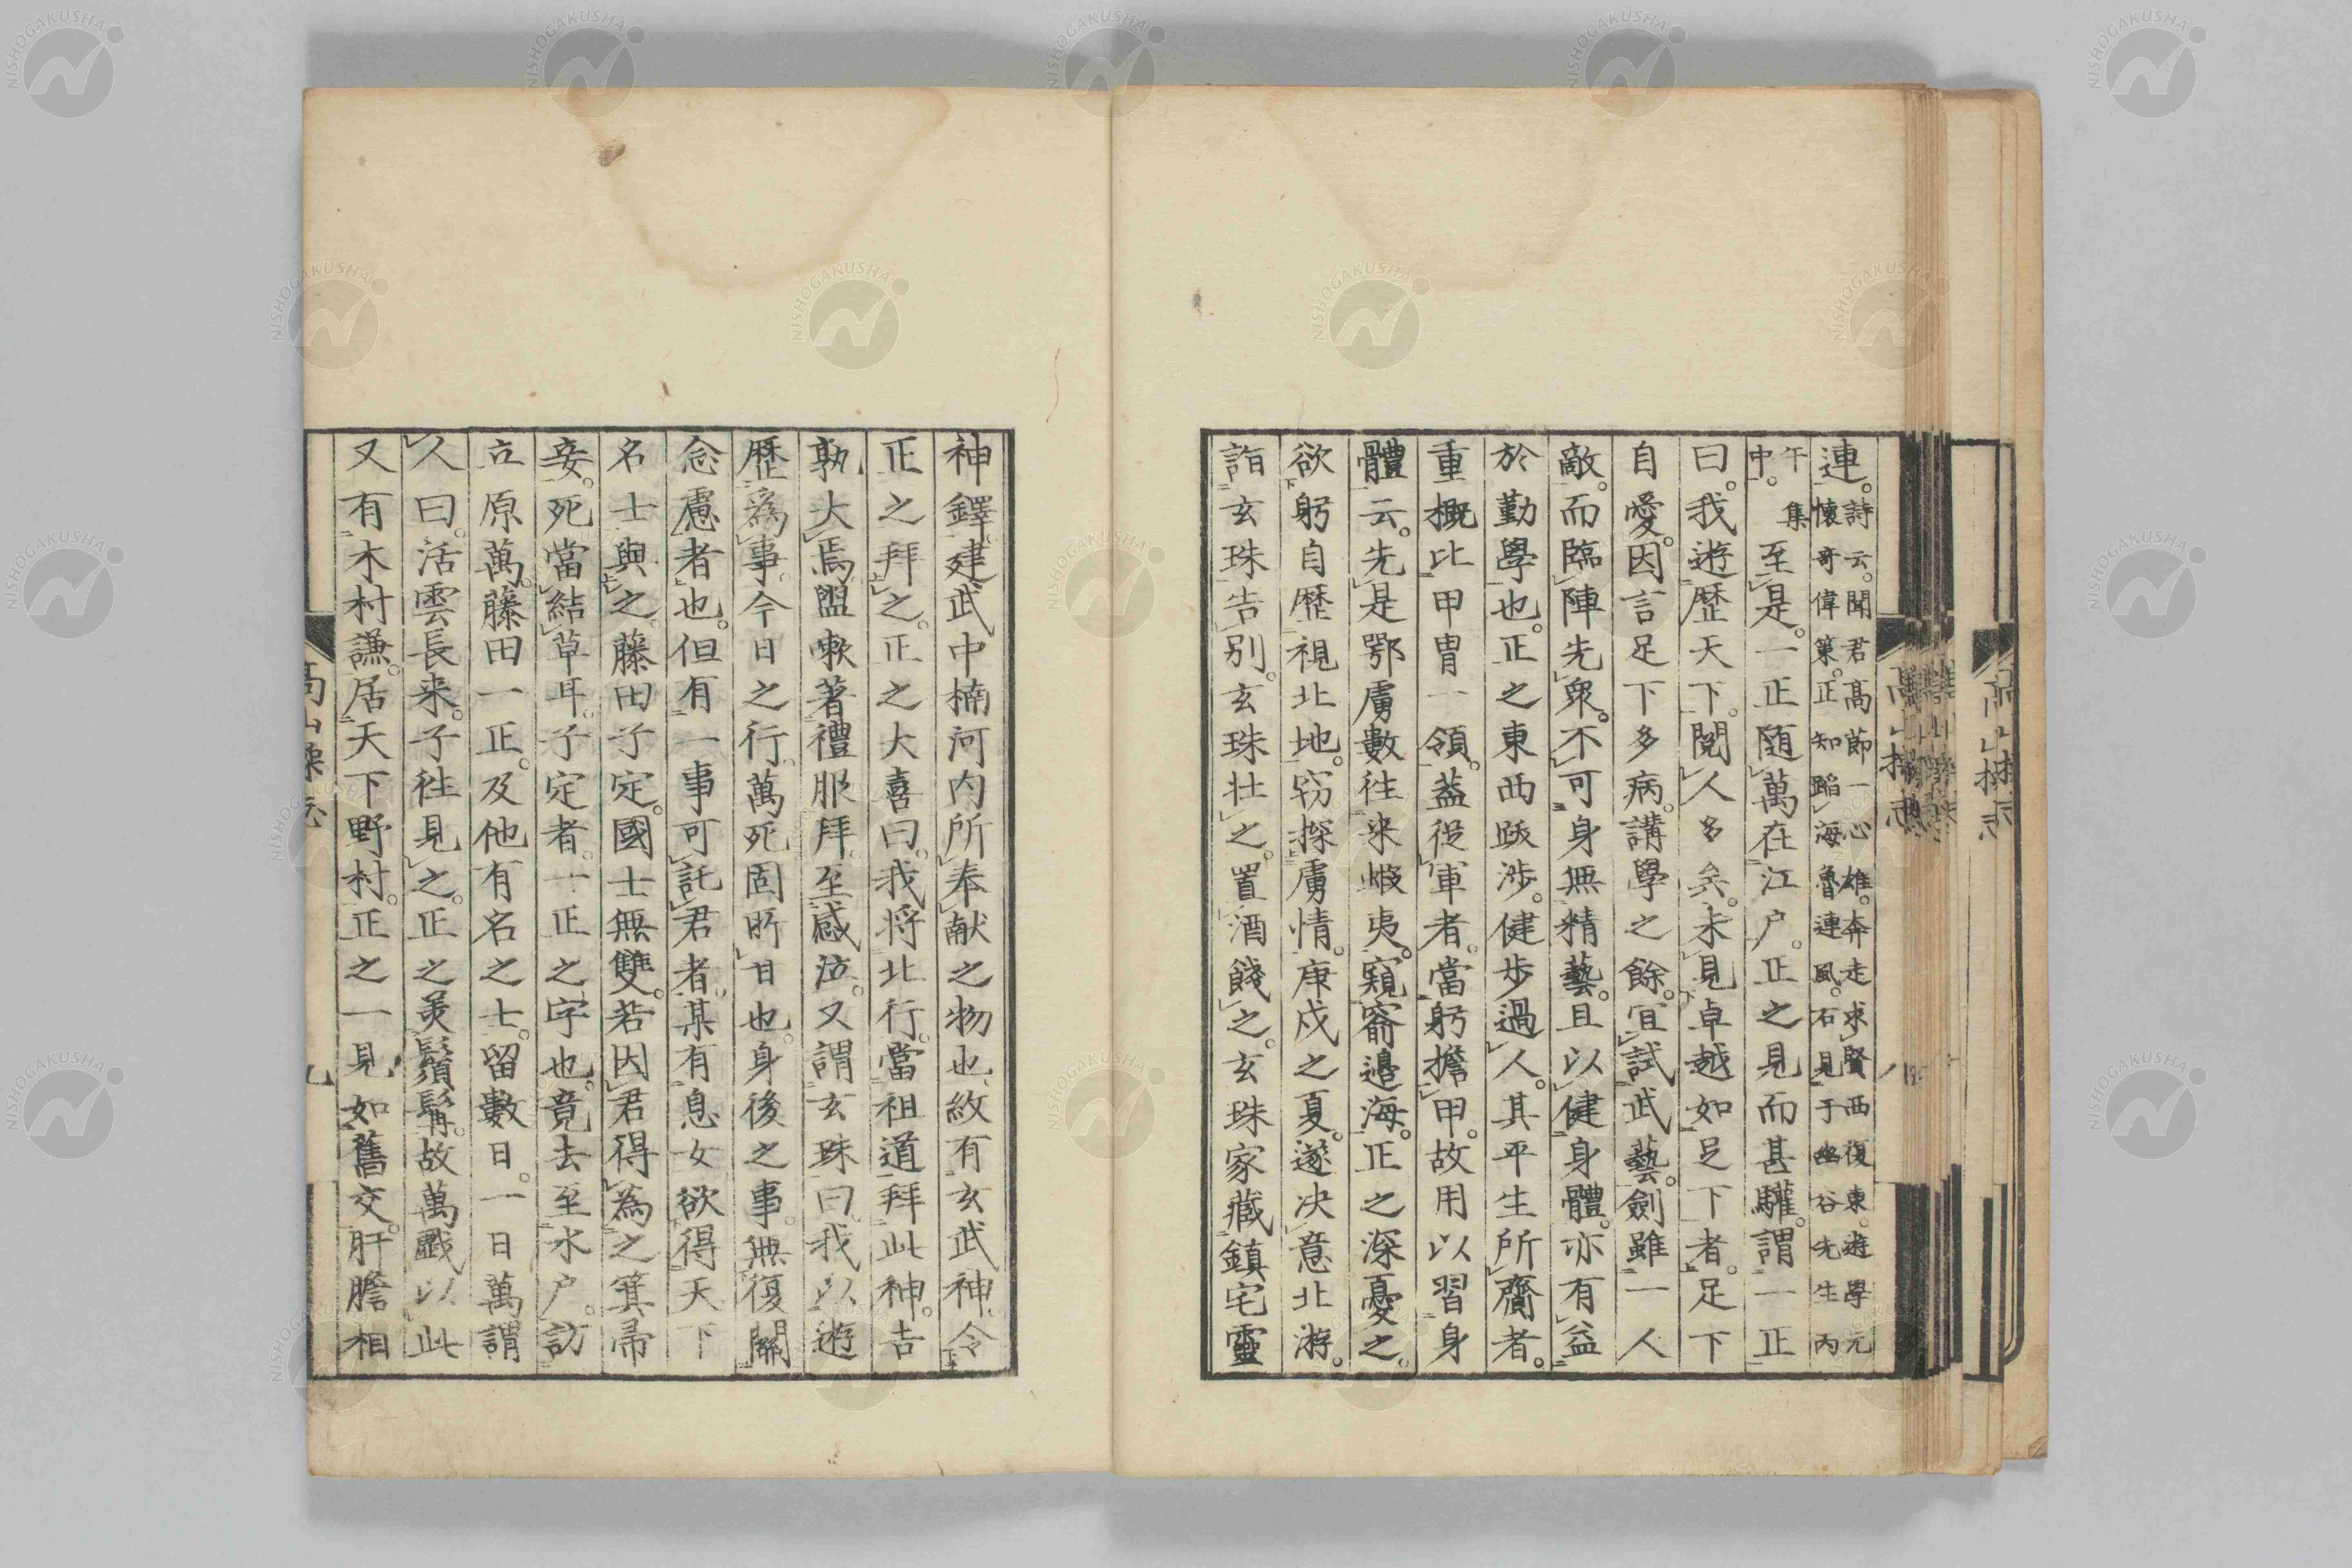 連。詩云。聞君髙節一心雄。奔走求賢西復東。遊學元
懷哥偉策。正知蹈海魯連風。石見于幽谷先生丙
午集中。至是。一正随萬在江户。正之見而甚驩。謂一正
曰。我遊歴天下。閱人多矣。未見卓越如足下者。足下
自愛。因言足下多病。講學之餘。宜試武藝。劍雖一人
敵。而臨陣先衆。不可身無精藝。且以健身體。亦有益
於勤學也。正之東西跋渉。健歩過人。其平生所齎者。
重概比甲冑一領。葢從軍者。當躬擔甲。故用以習身
體云。先是鄂虜數往来蝦夷。窺窬邉海。正之深憂之。
欲躬自歴視北地。窃探虜情。庚戌之夏。遂决意北游。
詣玄珠告別。玄珠壮之。置酒餞之。玄珠家藏鎮宅靈
神鐸。建武中楠河内所奉献之物也。紋有玄武神。令
正之拜之。正之大喜曰。我将北行。當祖道拜此神。吉
孰大焉。盥嗽著禮服拜。至感泣。又謂玄珠曰。我以遊
歴為事。今日之行。萬死固所甘也。身後之事。無復關
念慮者也。但有一事可託君者。某有息女欲得天下
名士與之。藤田子定。國士無雙。若因君得為之箕帚
妾。死當結草耳。子定者。一正之字也。竟去至水户。訪
立原萬。藤田一正。及他有名之士。留數日。一日萬謂
人曰。活雲長来。子徃見之。正之美鬚髯。故萬戲以此
又有木村謙。居天下野村。正之一見如舊交。肝膽相
髙山操志
九
NISHOGAKUSHA